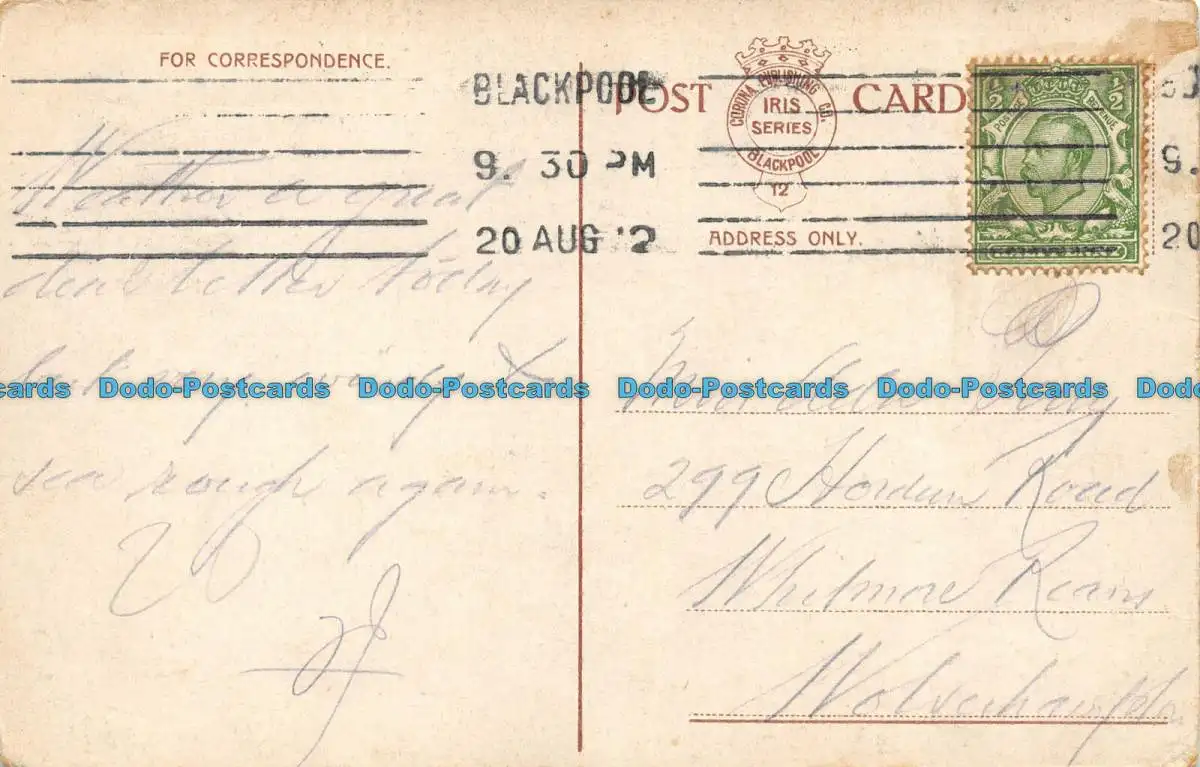 FOR CORRESPONDENCE.
BLACKPOOL
9. 30 PM
20 AUG 12
POST CARD
CORONA PUBLISHING CO.
IRIS
SERIES
BLACKPOOL
12
ADDRESS ONLY.
½ ½
POSTAGE REVENUE
9.
20
Weather a great
deal better today
but very windy &
sea rough again.
Dodo-Postcards Dodo-Postcards Dodo-Postcards Dodo-Postcards Dodo-Postcards
Miss
299 Hordern Road
Whitmore Reans
Wolverhampton